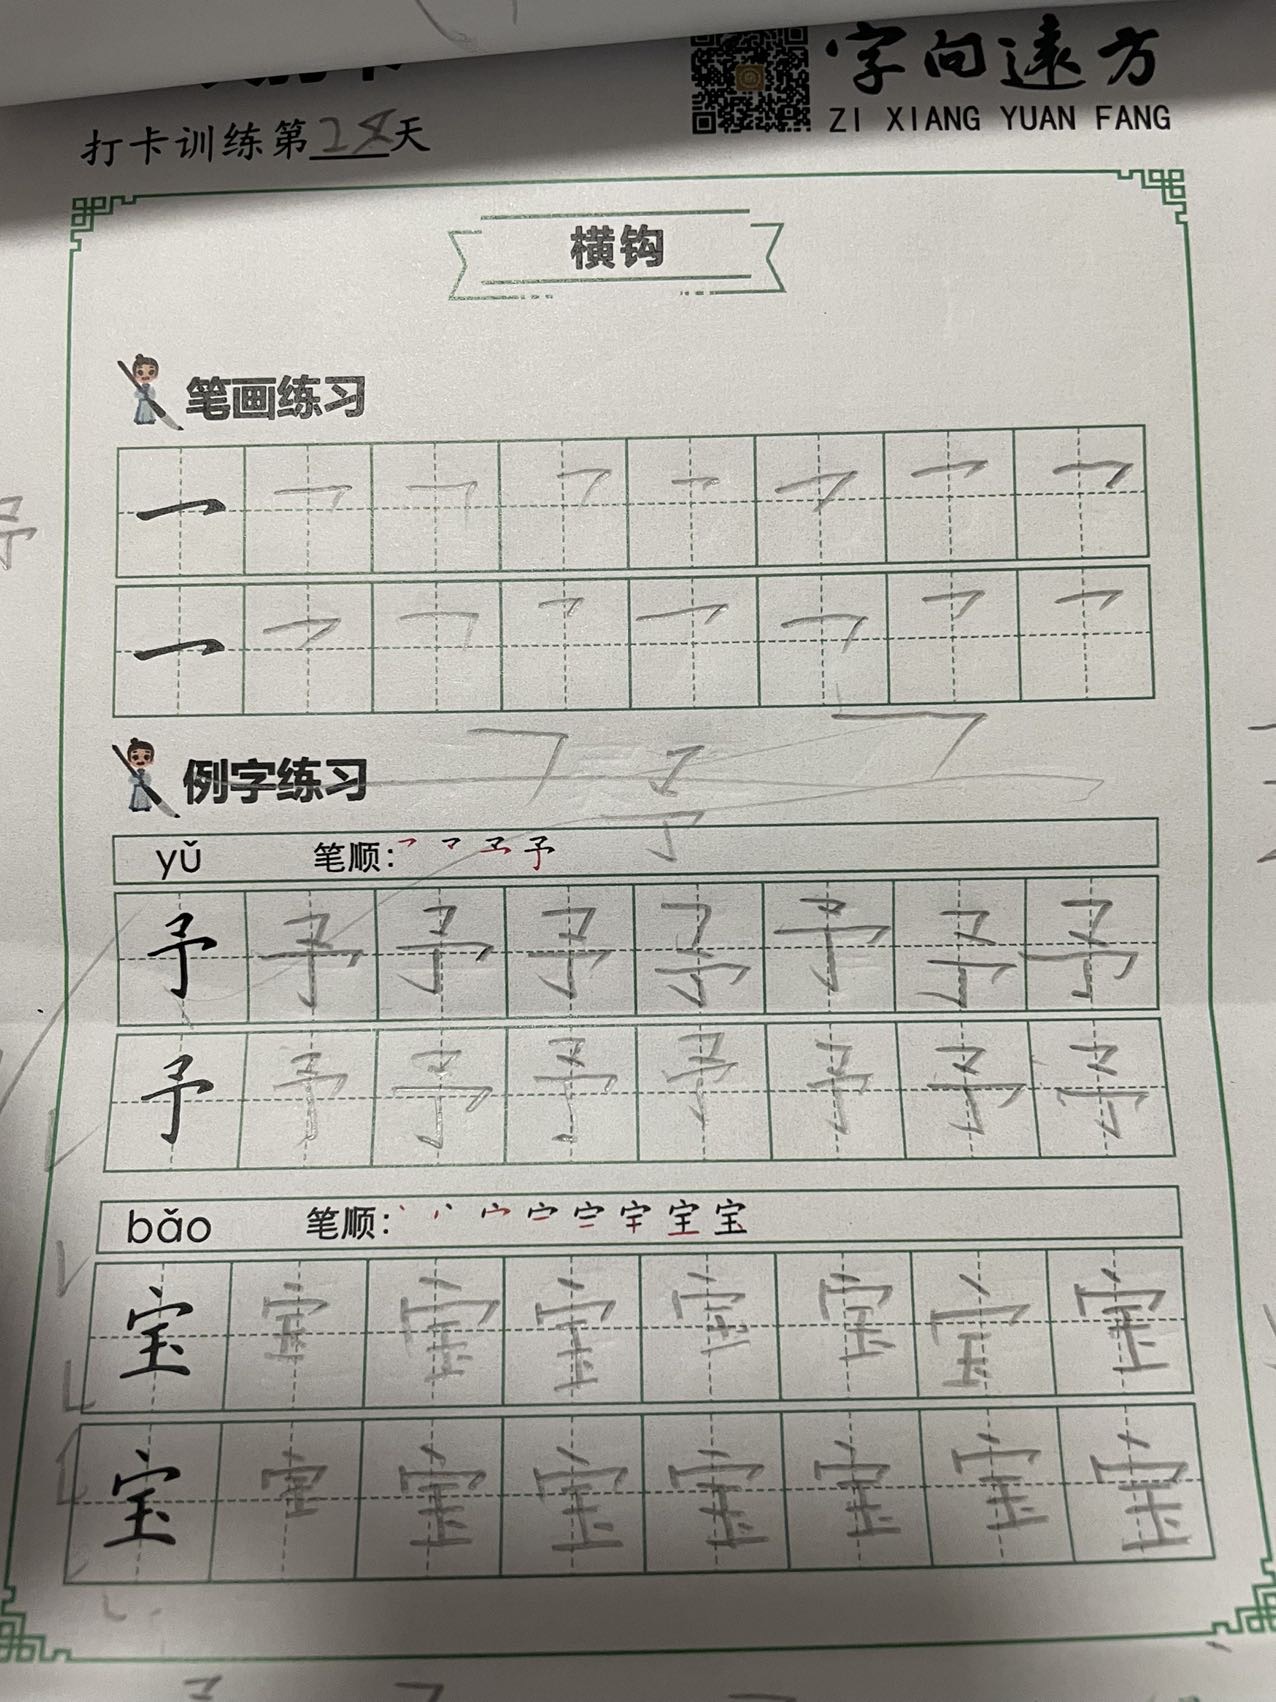 字向远方
ZI XIANG YUAN FANG
打卡训练第28天
横钩
笔画练习
例字练习
yǔ 笔顺: 予
予 予 予 予 予 予 予 予
予 予 予 予 予 予 予 予
bǎo 笔顺: 宝
宝 宝 宝 宝 宝 宝 宝 宝
宝 宝 宝 宝 宝 宝 宝 宝